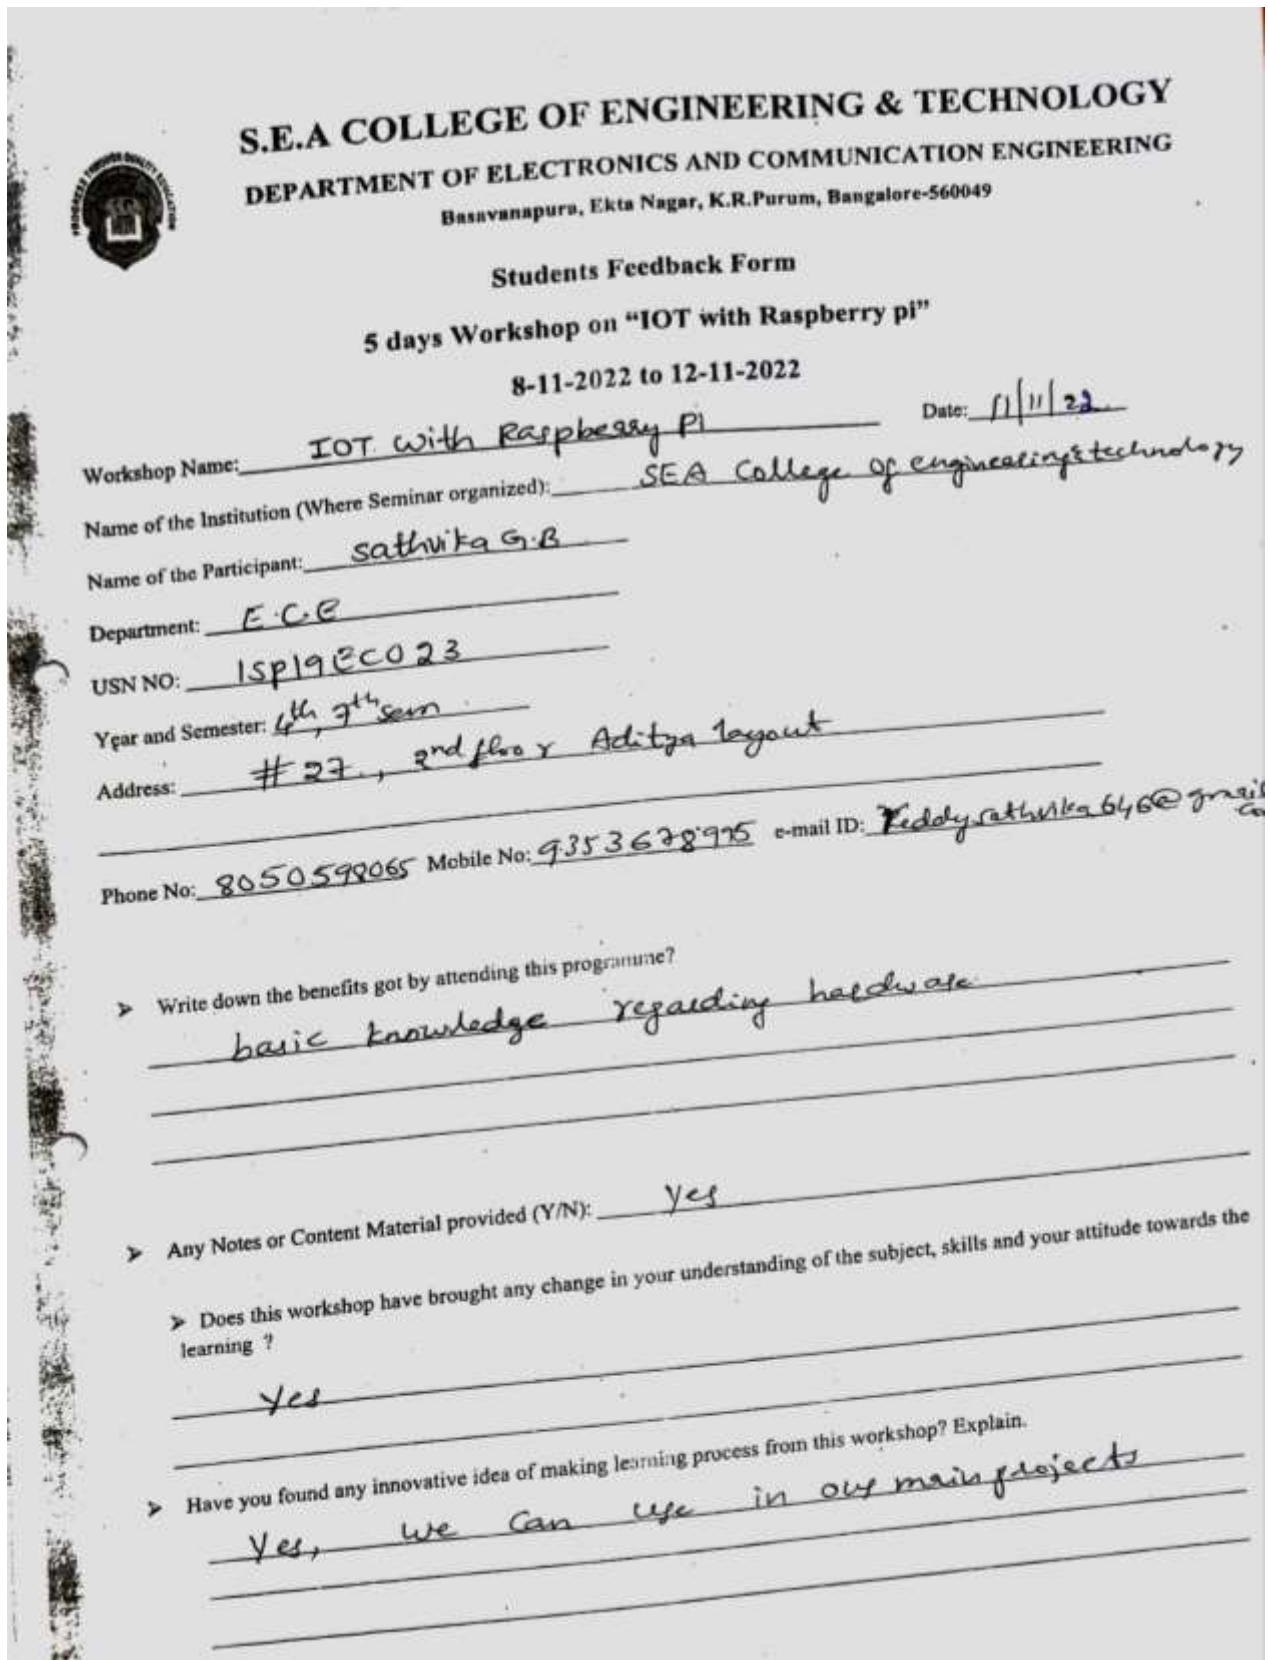 S.E.A COLLEGE OF ENGINEERING & TECHNOLOGY
DEPARTMENT OF ELECTRONICS AND COMMUNICATION ENGINEERING
Basavanapura, Ekta Nagar, K.R.Purum, Bangalore-560049
Students Feedback Form
5 days Workshop on “IOT with Raspberry pi”
8-11-2022 to 12-11-2022
Date: 11/11/22
Workshop Name: IOT with Raspberry PI
Name of the Institution (Where Seminar organized): SEA College of engineering & technology
Name of the Participant: Sathvika G.B
Department: E.C.E
USN NO: 1SP19EC023
Year and Semester: 4th, 7th sem
Address: #27, 2nd floor Aditya layout
Phone No: 8050598065 Mobile No: 9353678975 e-mail ID: reddysathvika646@gmail
➤ Write down the benefits got by attending this programme?
basic knowledge regarding hardware
➤ Any Notes or Content Material provided (Y/N): yes
➤ Does this workshop have brought any change in your understanding of the subject, skills and your attitude towards the
learning ?
Yes
➤ Have you found any innovative idea of making learning process from this workshop? Explain.
Yes, we can use in our main projects